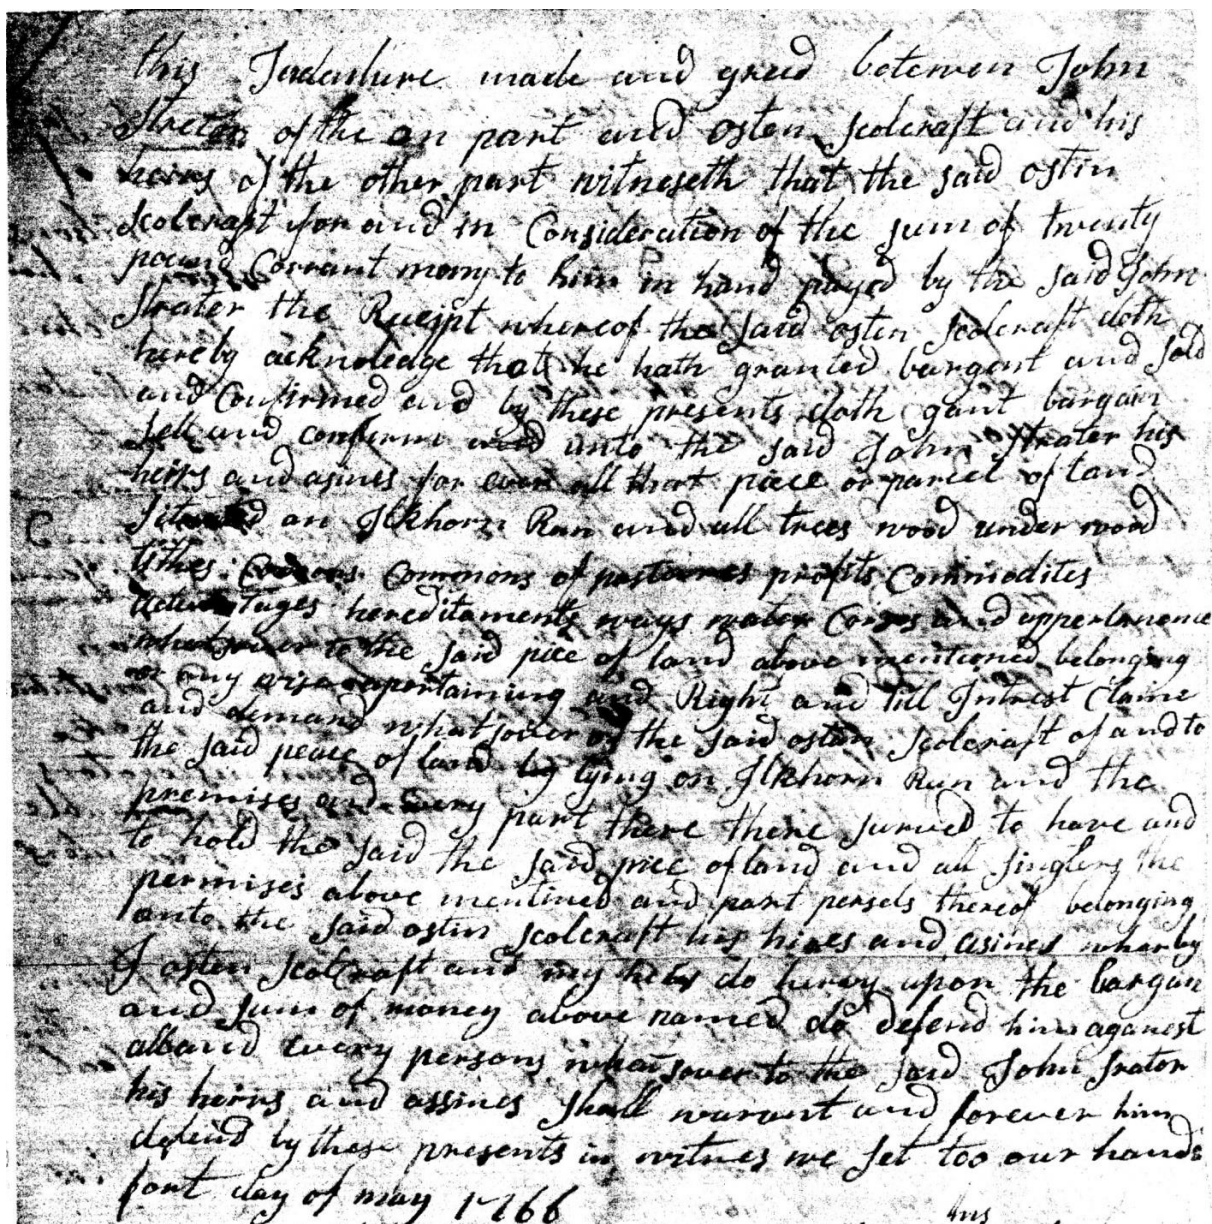 this Indenture made and greed betewen John
Streter of the on part and osten Scolcraft and his
heirs of the other part witneseth that the said ostin
Scolcraft for and in Consideration of the sum of twenty
pound Corrant mony to him in hand payed by the said John
Strater the Receipt whereof the said osten Scolcraft doth
hereby acknoledge that he hath granted bargent and sold
and Confirmed and by these presents doth gant bargain
Sell and confirm unto the said John Strater his
heirs and asines for ever all that piece or parcel of land
Situated on Ilkhorn Run and all trees wood under wood
tithes Commons of pastures profits Commodites
advantages hereditaments ways water Corses and appertenance
whatsoever to the said piece of land above mentioned belonging
or any wise apertaining and Right and till Intrest Claime
and demand whatsover of the said osten Scolcraft of and to
the said peace of land lying on Ilkhorn Run and the
premises and Every part there there surved to have and
to hold the said the said piece of land and all singlers the
permises above mentined and part persels thereof belonging
onto the said ostin Scolcraft his hires and asines wharby
I osten Scolcraft and my heirs do hereby upon the bargan
and Sum of money above named do defend him aganest
all and every persons whatsover to the said John Srator
his heirs and assines Shall warant and forever him
defend by these presents in witnes we set too our hands
fort day of may 1766
his